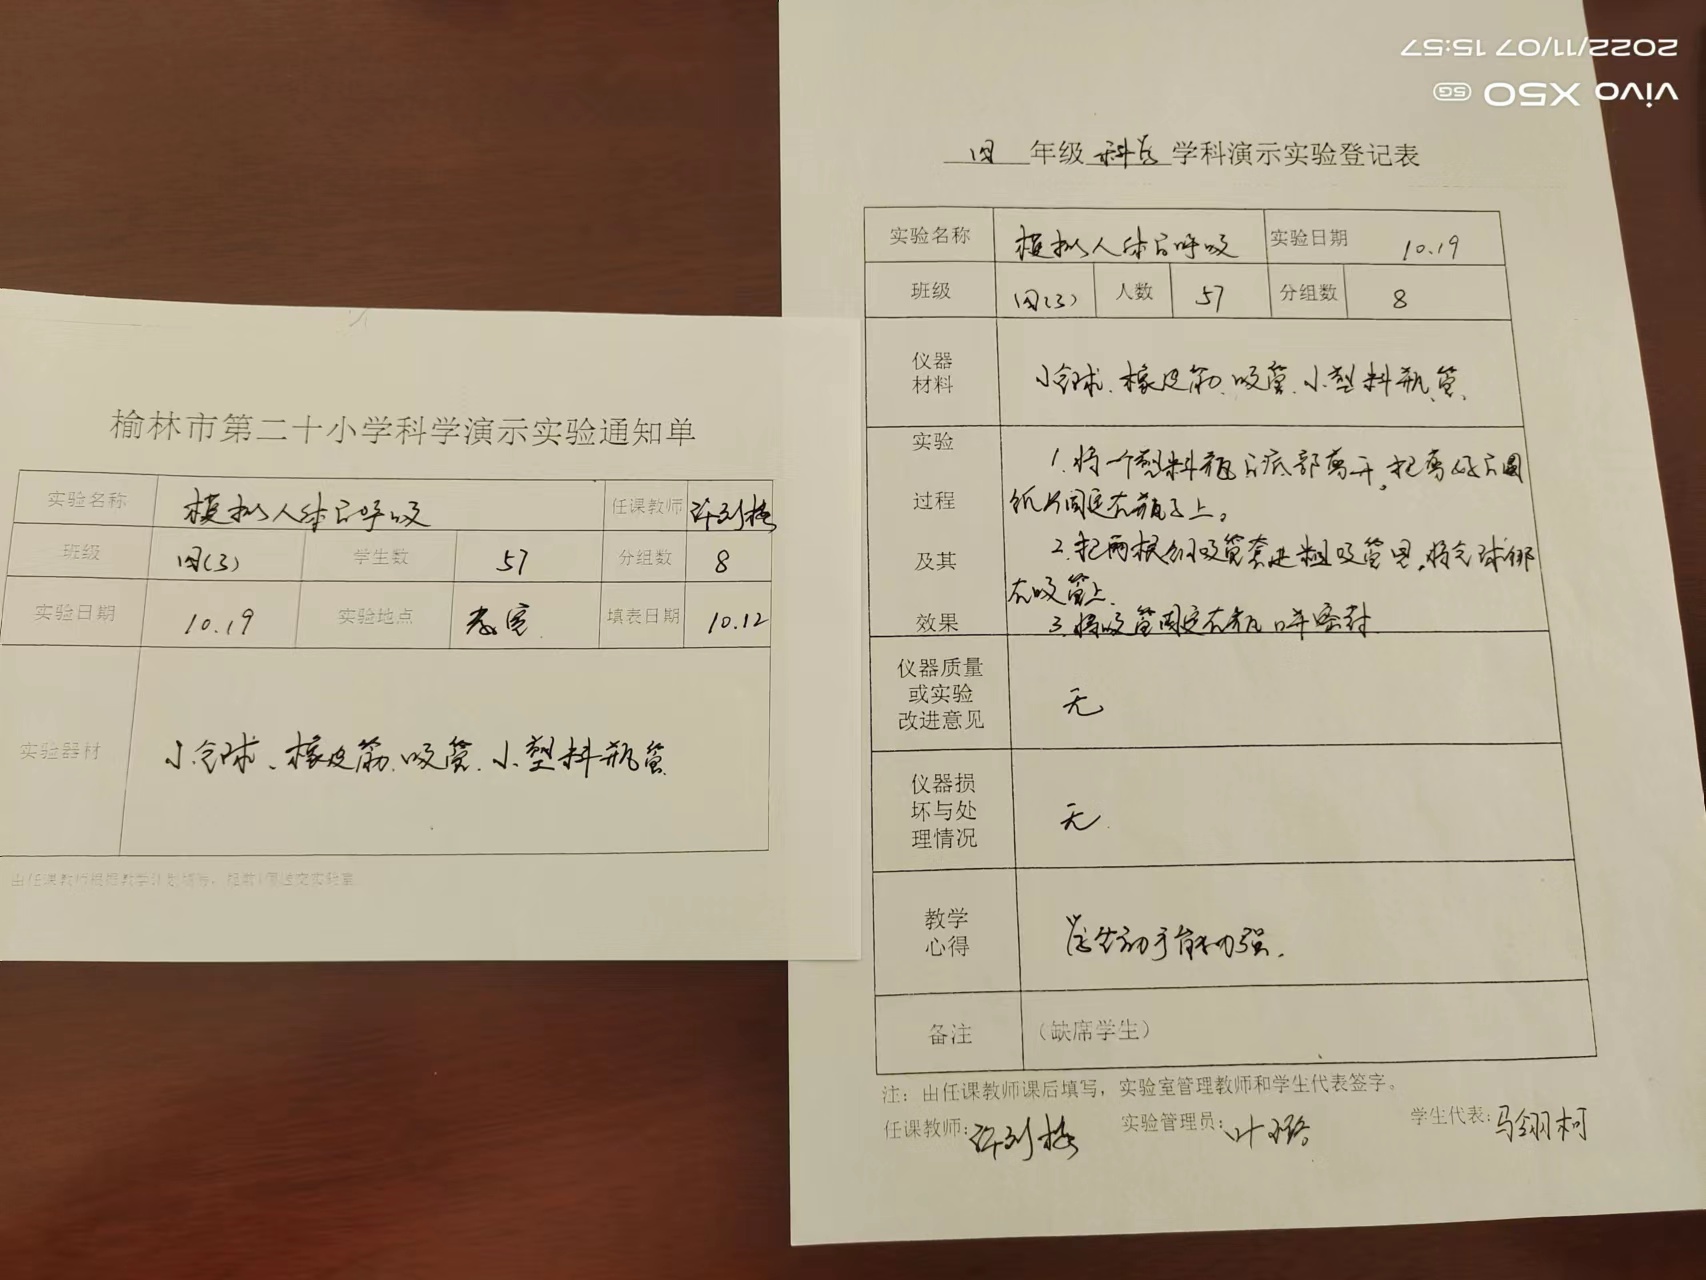 2022/11/07 15:57
vivo X50 5G
榆林市第二十小学科学演示实验通知单
实验名称 模拟人体的呼吸 任课教师
班级 四(3) 学生数 57 分组数 8
实验日期 10.19 实验地点 教室 填表日期 10.12
实验器材 小气球、橡皮筋、吸管、小塑料瓶等
由任课教师根据教学计划填写，提前1周送交实验室
四 年级 科学 学科演示实验登记表
实验名称 模拟人体的呼吸 实验日期 10.19
班级 四(3) 人数 57 分组数 8
仪器
材料
小气球、橡皮筋、吸管、小塑料瓶、等、
实验
过程
及其
效果
1.将一个塑料瓶的底部剪开，把剪好的圆
纸片固定在瓶子上。
2.把两根细吸管套进粗吸管里，将气球绑
在吸管上.
3.将吸管固定在瓶口并密封
仪器质量
或实验
改进意见
无
仪器损
坏与处
理情况
无.
教学
心得
学生动手能力强.
备注 （缺席学生）
注：由任课教师课后填写，实验室管理教师和学生代表签字。
任课教师: 实验管理员: 叶璐 学生代表: 马翎柯